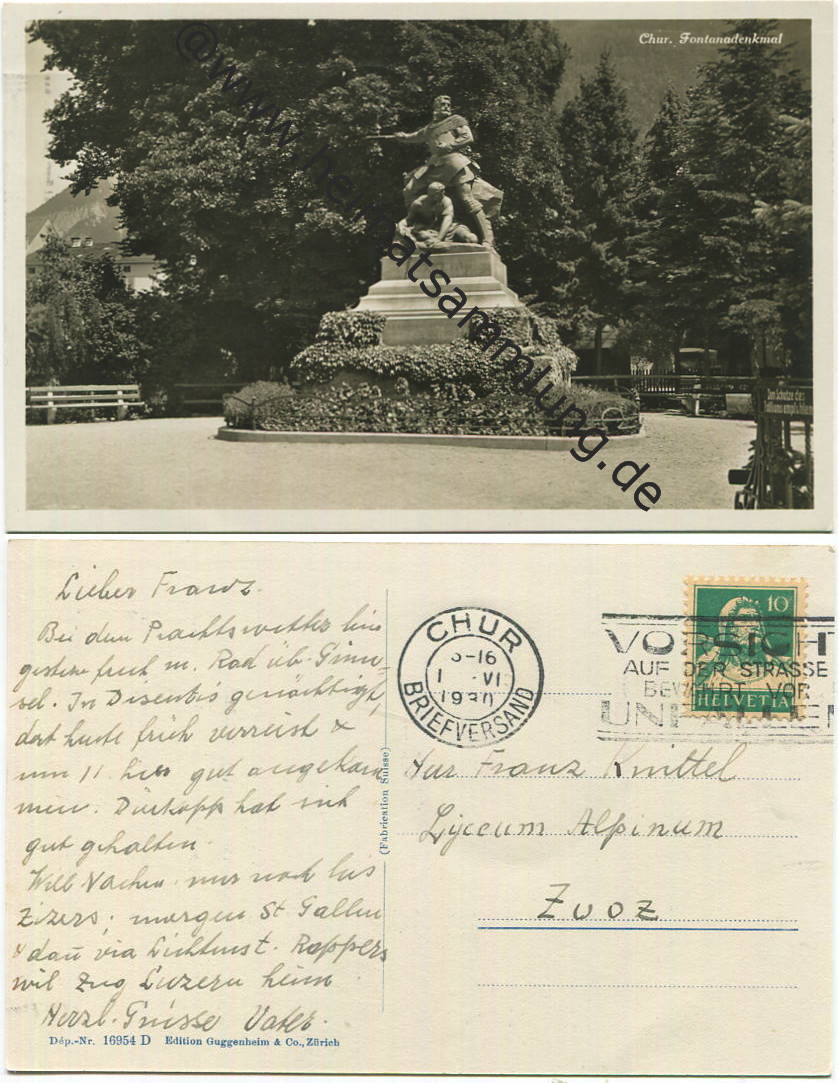 Chur. Fontanadenkmal
@www.heimatsammlung.de
Dem Schutze des
Publikums empfohlen
Lieber Franz.
Bei dem Prachtswetter bin
gestern früh m. Rad üb. Grim-
sel. In Disentis genächtigt,
dort heute früh verreist &
um 11. hier gut angekom
men. Dürkopp hat sich
gut gehalten.
Will Nachm. nur noch bis
Zizers, morgen St Gallen
& dañ via Lichtenst. Rappers
wil Zug Luzern heim
Herzl. Grüsse Vater.
Dép.-Nr. 16954 D Edition Guggenheim & Co., Zürich
(Fabrication Suisse)
CHUR
-16
VI
1930
BRIEFVERSAND
10
HELVETIA
VORSICHT
AUF DER STRASSE
BEWAHRT VOR
UNFÄLLEN
Herr Franz Knittel
Lyceum Alpinum
Zuoz